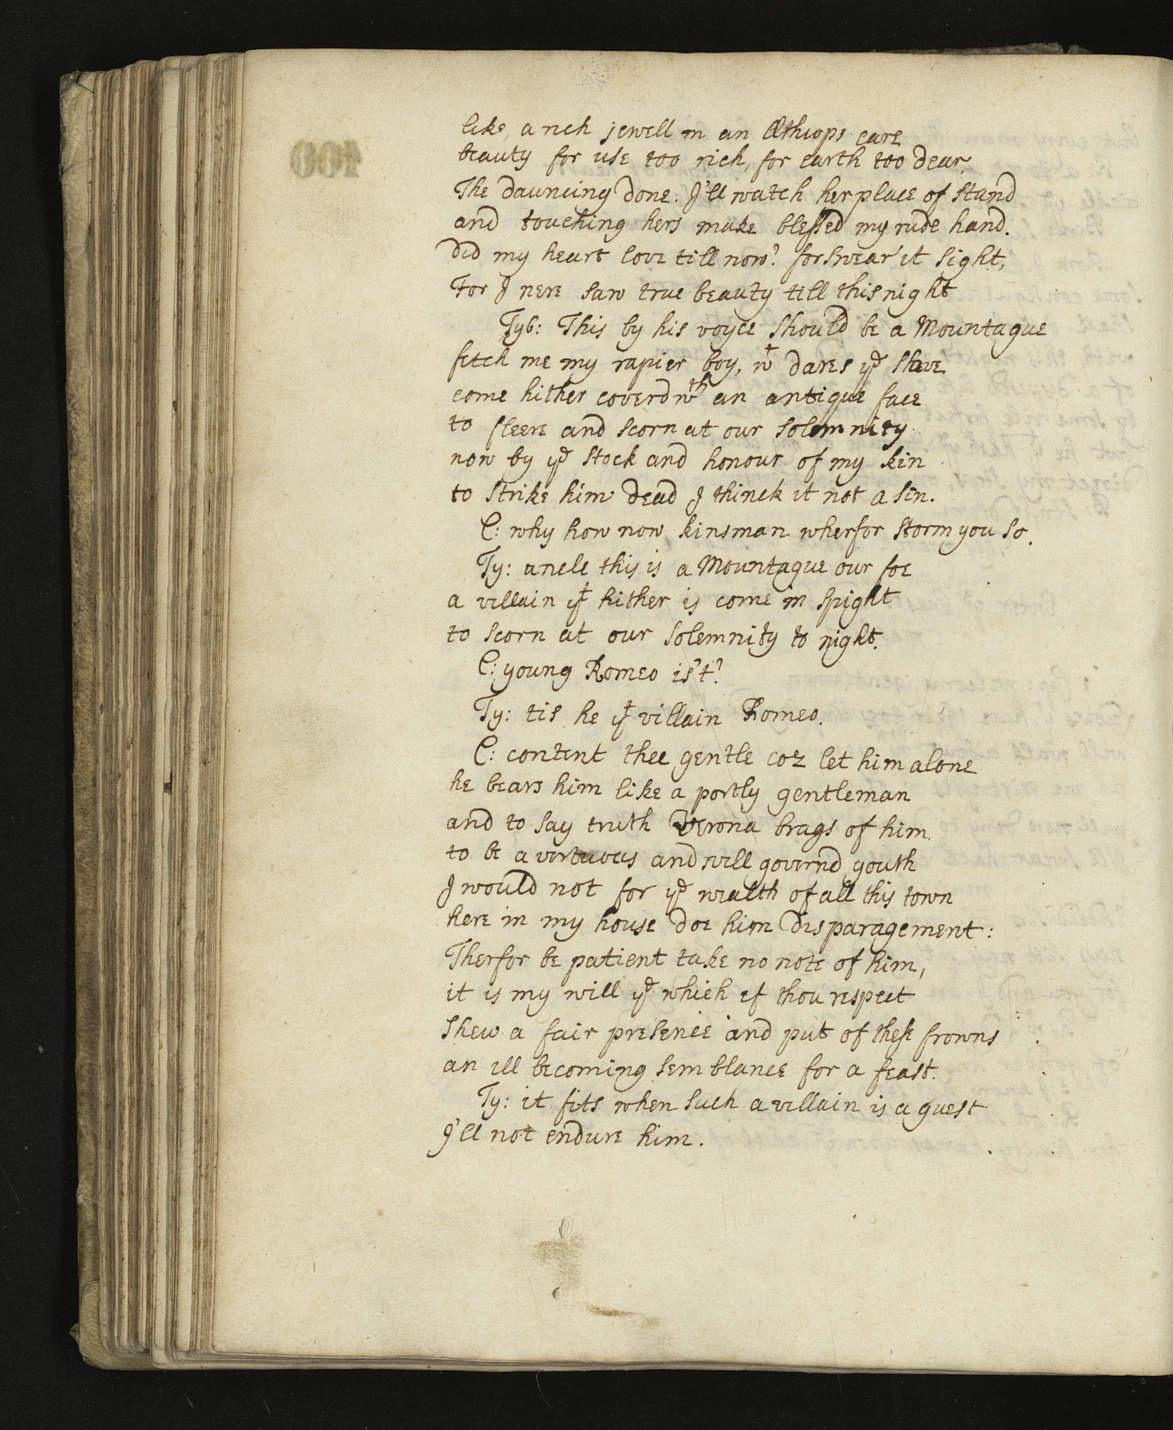 like a rich jewell in an Æthiops eare
beauty for use too rich, for earth too dear.
The dauncing done. I'll watch her place of stand
and touching hers make blessed my rude hand.
Did my heart love till now? forswear it sight,
For I nere saw true beauty till this night
Tyb: This by his voyce should be a Mountague
fetch me my rapier boy, wt dares ye slave
come hither coverd wth an antique face
to fleere and scorn at our solemnity
now by ye stock and honour of my kin
to strike him dead I thinck it not a sin.
C: why how now kinsman wherfor storm you so.
Ty: uncle this is a Mountague our foe
a villain yt hither is come in spight
to scorn at our solemnity to night.
C: young Romeo is't?
Ty: tis he yt villain Romeo.
C: content thee gentle coz let him alone
he bears him like a portly gentleman
and to say truth Verona brags of him
to be a vertuous and well governd youth
I would not for ye wealth of all this town
here in my house doe him disparagement:
Therfor be patient take no note of him,
it is my will ye which if thou respect
shew a fair presence and put of these frowns
an ill becoming semblance for a feast.
Ty: it fits when such a villain is a guest
I'll not endure him.